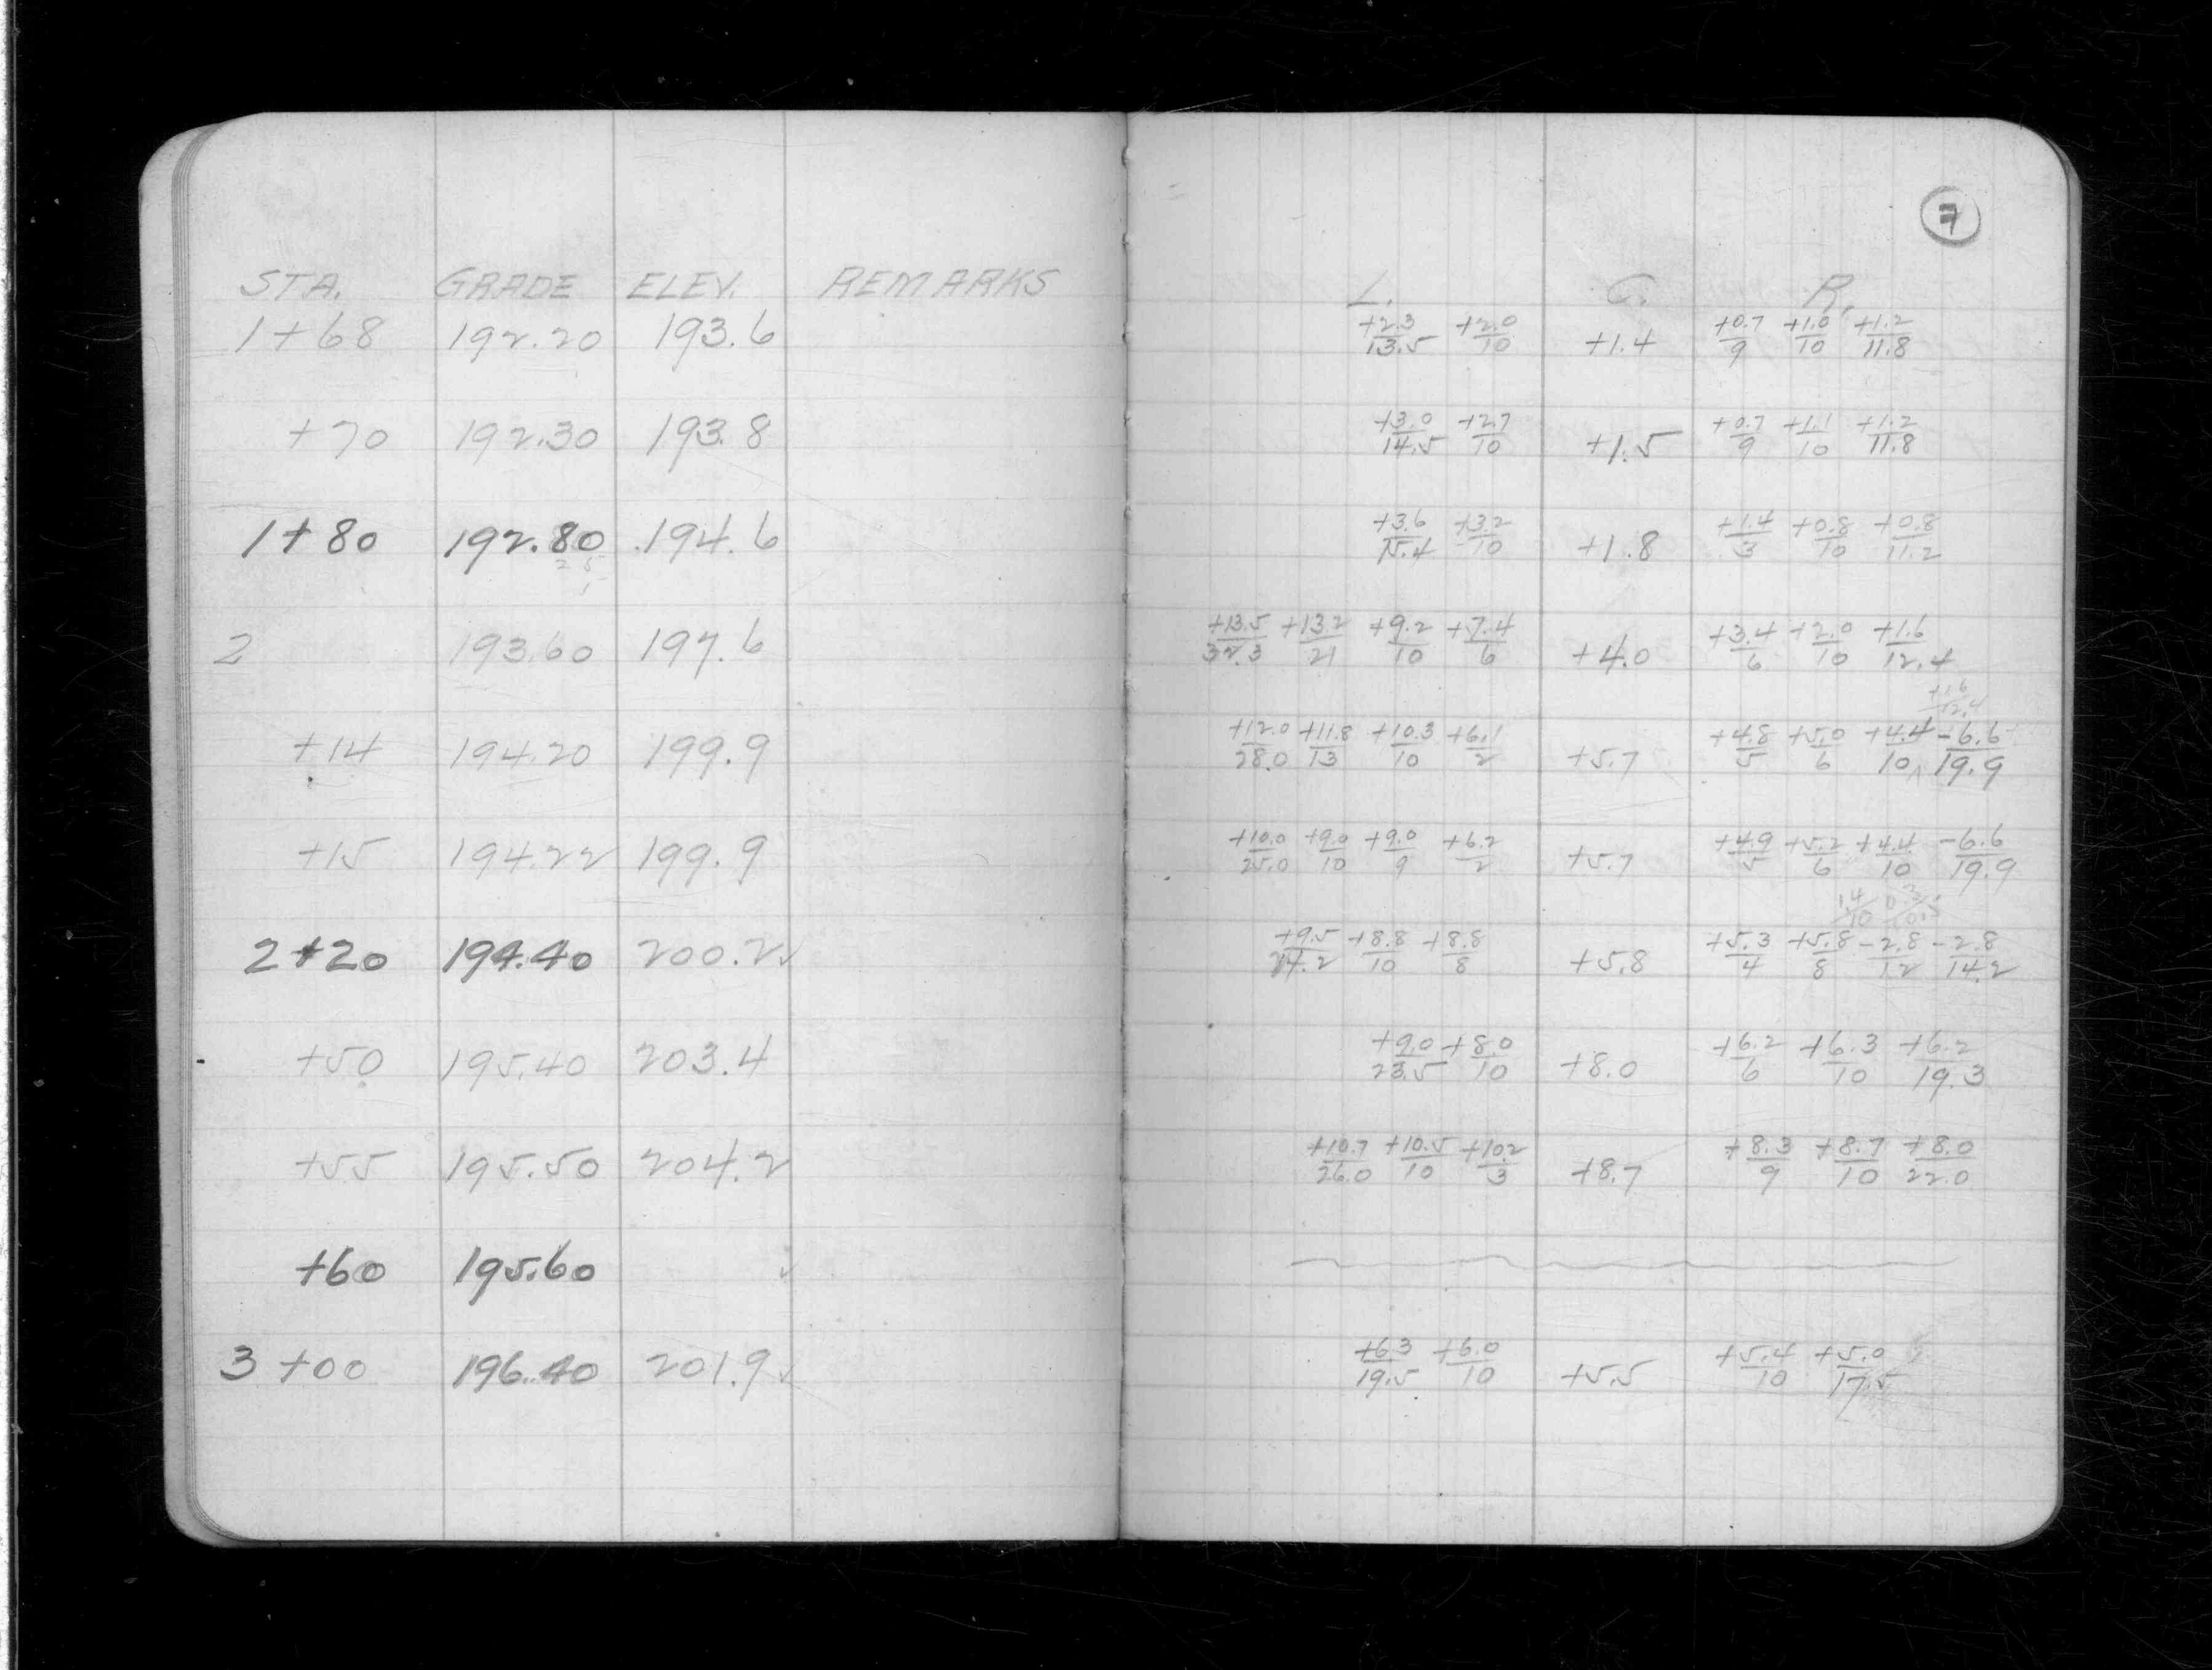 7
STA. GRADE ELEV. REMARKS L. C. R.
1+68 192.20 193.6 +2.3/13.5 +2.0/10 +1.4 +0.7/9 +1.0/10 +1.2/11.8
+70 192.30 193.8 +3.0/14.5 +2.7/10 +1.5 +0.7/9 +1.1/10 +1.2/11.8
1+80 192.80 194.6 +3.6/15.4 +3.2/10 +1.8 +1.4/3 +0.8/10 +0.8/11.2
2 193.60 197.6 +13.5/32.3 +13.2/21 +9.2/10 +7.4/6 +4.0 +3.4/6 +2.0/10 +1.6/12.4
+1.6/12.4
+14 194.20 199.9 +12.0/28.0 +11.8/13 +10.3/10 +6.1/2 +5.7 +4.8/5 +5.0/6 +4.4/10 -6.6/19.9
+15 194.22 199.9 +10.0/25.0 +9.0/10 +9.0/9 +6.2/2 +5.7 +4.9/5 +5.2/6 +4.4/10 -6.6/19.9
1.4/10
2+20 194.40 200.2✓ +9.5/24.2 +8.8/10 +8.8/8 +5.8 +5.3/4 +5.8/8 -2.8/12 -2.8/14.2
+50 195.40 203.4 +9.0/23.5 +8.0/10 +8.0 +6.2/6 +6.3/10 +6.2/19.3
+55 195.50 204.2 +10.7/26.0 +10.5/10 +10.2/3 +8.7 +8.3/9 +8.7/10 +8.0/22.0
+60 195.60 ✓
3+00 196.40 201.9✓ +6.3/19.5 +6.0/10 +5.5 +5.4/10 +5.0/17.5